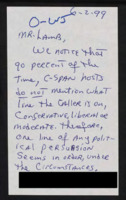 O-WS
6-2-99
MR. LAMB,
WE NOTICE THAT
90 PERCENT OF THE
TIME, C-SPAN HOSTS
do NOT MENTION WHAT
LINE THE CALLER IS ON,
CONSERVATIVE, LIBERAL OR
MODERATE. THEREFORE,
ONE LINE OF ANY POLIT-
ICAL PERSUASION
SEEMS IN ORDER, UNDER
THE CIRCUMSTANCES,